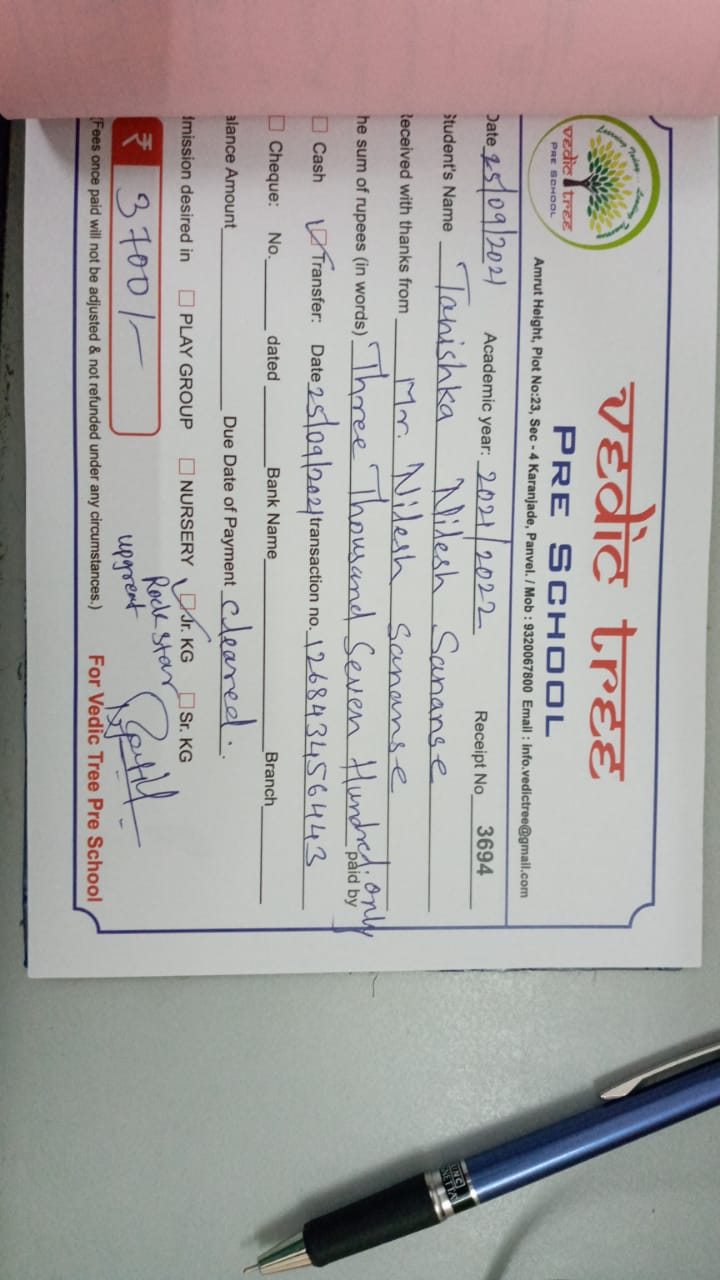 Learning Today... Leading Tomorrow
vedic tree
PRE SCHOOL
vedic tree
PRE SCHOOL
Amrut Height, Plot No:23, Sec - 4 Karanjade, Panvel. / Mob : 9320067800 Email : info.vedictree@gmail.com
Date 25/09/2021 Academic year: 2021/2022 Receipt No 3694
Student's Name Tanishka Nilesh Sananse
Received with thanks from Mr. Nilesh Sananse
he sum of rupees (in words) Three Thousand Seven Hundred. only paid by
Cash Transfer: Date 25/09/2021 transaction no. 126843456443
Cheque: No. dated Bank Name Branch
alance Amount Due Date of Payment cleared.
dmission desired in PLAY GROUP NURSERY Jr. KG Sr. KG
Rock star
₹ 3700/-
(Fees once paid will not be adjusted & not refunded under any circumstances.) For Vedic Tree Pre School